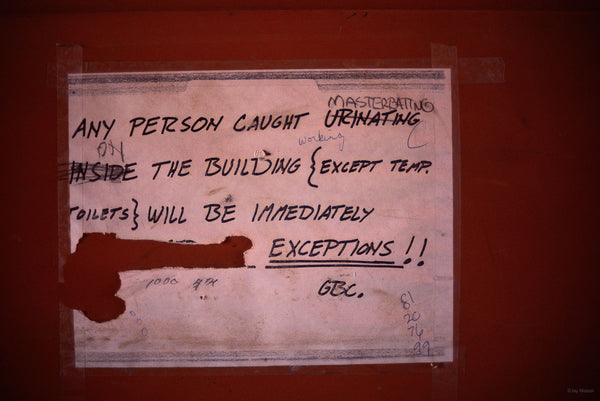 MASTERBATING
ANY PERSON CAUGHT URINATING
working
ON
INSIDE THE BUILDING {EXCEPT TEMP.
TOILETS} WILL BE IMMEDIATELY
EXCEPTIONS!!
GBC.
81
20
76
99